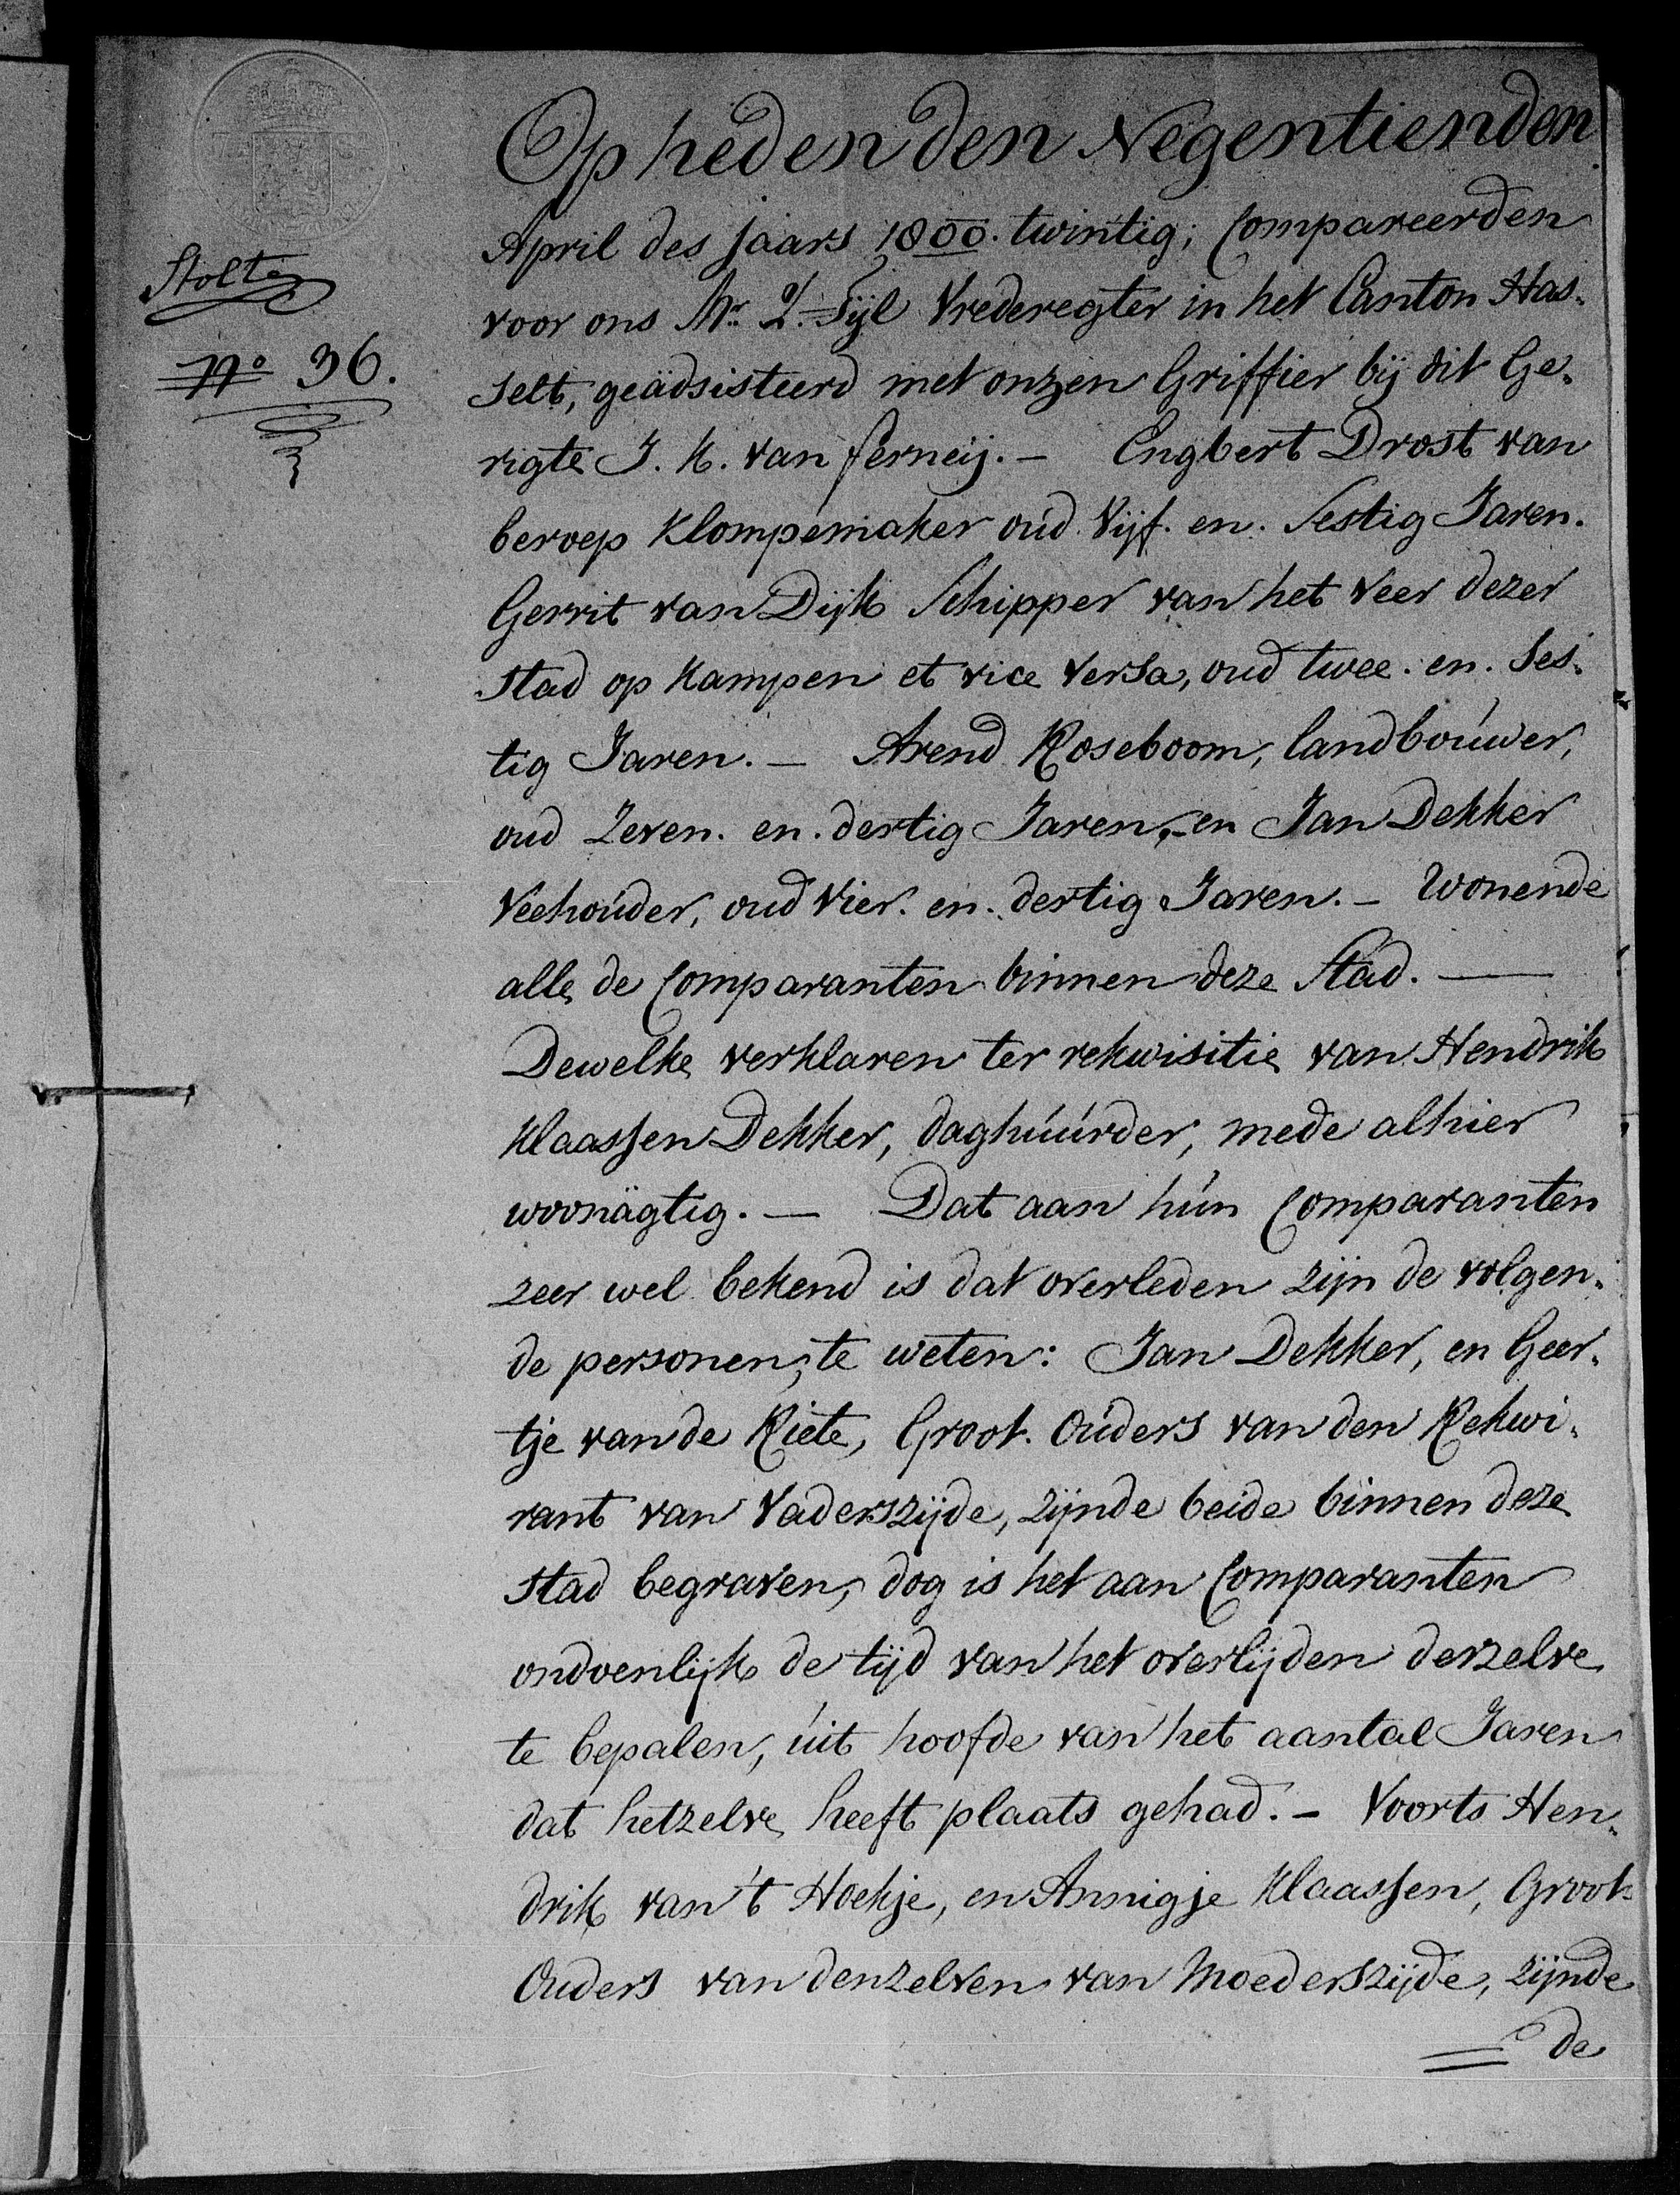 Stolte
No 36.
Op heden den Negentienden
April des jaars 1800. twintig; Compareerden
voor ons Mr. L. Tijl Vrederegter in het Canton Has-
selt, geädsisteerd met onzen Griffier bij dit Ge-
rigte J. H. van ferneij. — Engbert Drost van
beroep Klompemaker oud Vijf. en. Sestig Jaren.
Gerrit van Dijk Schipper van het veer dezer
Stad op Kampen et vice versa, oud twee. en. Ses-
tig Jaren. — Arend Roseboom, landbouwer,
oud Zeven. en. dertig Jaren, en Jan Dekker
Veehouder, oud Vier. en. dertig Jaren. — Wonende
alle de Comparanten binnen deze Stad. —
Dewelke verklaren ter rekwisitie van Hendrik
Klaassen Dekker, daghuurder, mede alhier
woonägtig. — Dat aan hun Comparanten
zeer wel bekend is dat overleden zijn de volgen-
de personen, te weten: Jan Dekker, en Geer-
tje van de Riete, Groot. Ouders van den Rekwi-
rant van Vaderszijde, zijnde beide binnen deze
Stad begraven, dog is het aan Comparanten
ondoenlijk de tijd van het overlijden derzelve
te bepalen, uit hoofde van het aantal Jaren
dat hetzelve heeft plaats gehad. — Voorts Hen-
drik van 't Hoekje, en Annigje Klaassen, Groot-
Ouders van denzelven van Moederszijde, zijnde
de